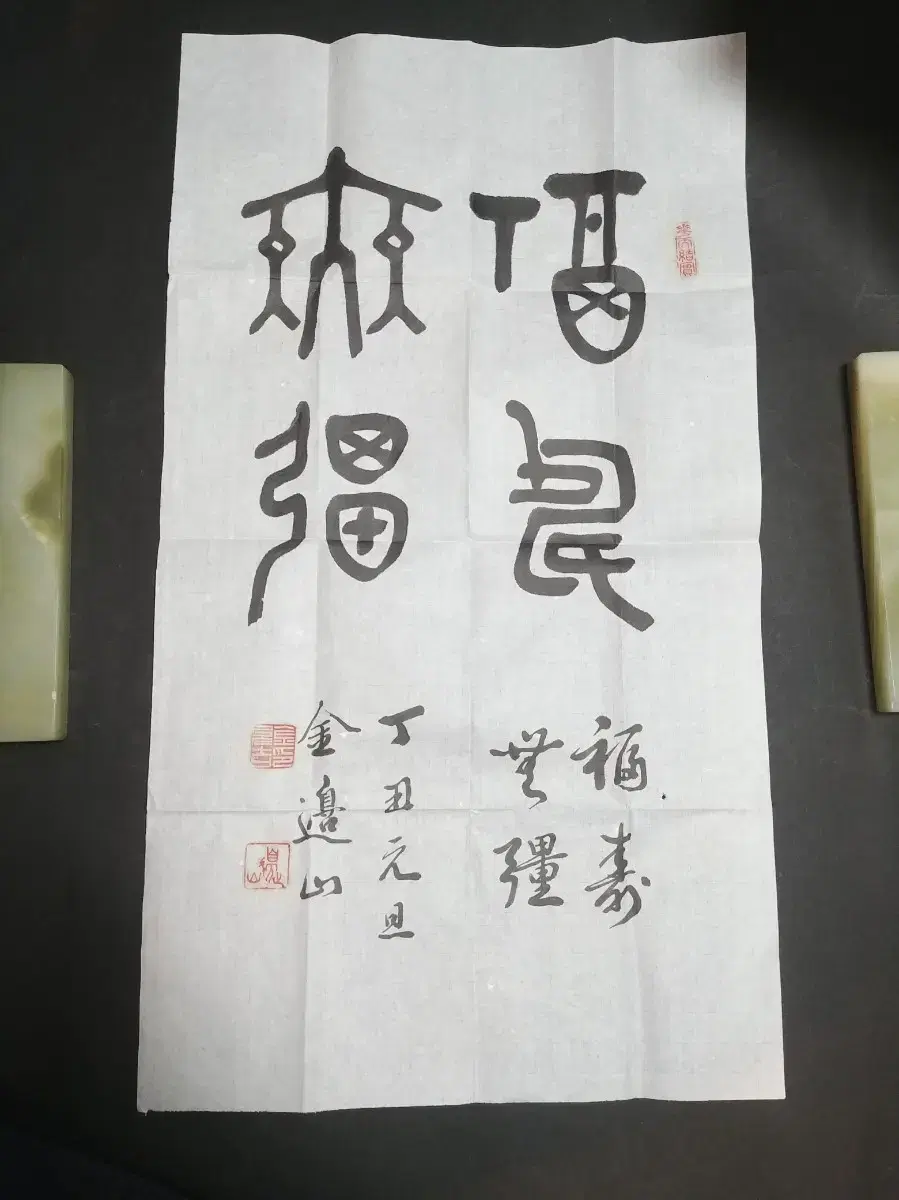 福壽
無疆
福壽
無彊
丁丑元旦
金邊山